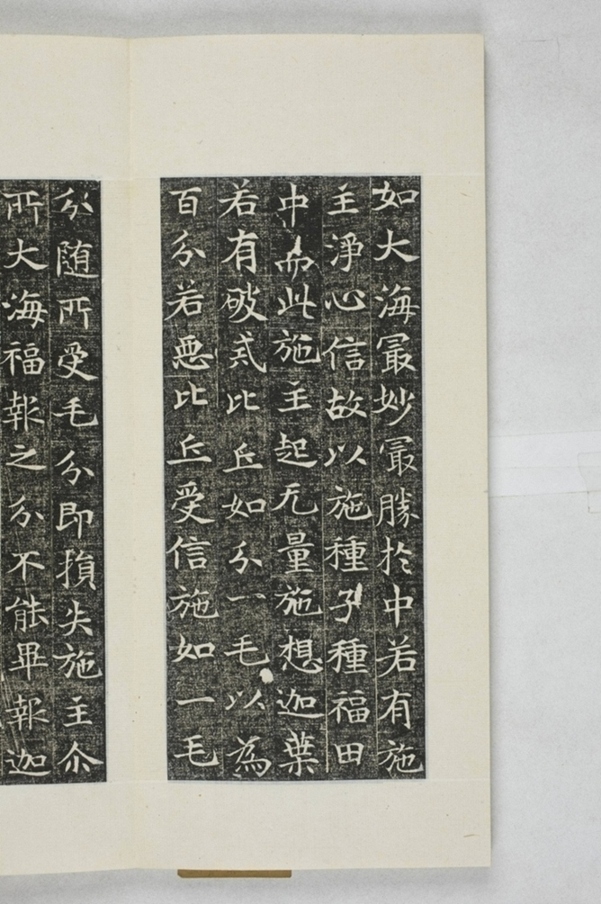 如大海冣妙冣勝扵中若有施
主淨心信故以施種子種福田
中而此施主起无量施想迦葉
若有破戒比丘如分一毛以為
百分若惡比丘受信施如一毛
分随所受毛分即損失施主尒
所大海福報之分不能畢報迦